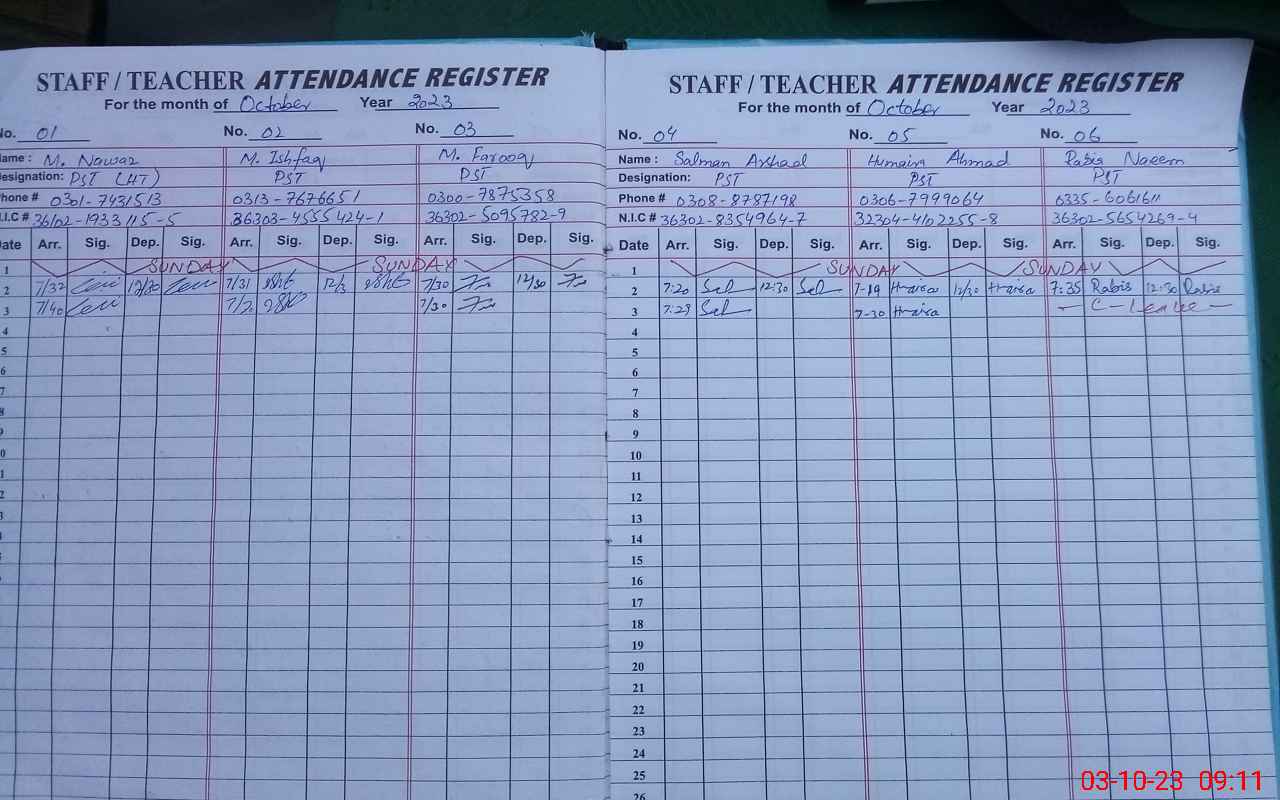 STAFF / TEACHER ATTENDANCE REGISTER
For the month of October Year 2023
No. 01 No. 02 No. 03
Name : M. Nawaz M. Ishfaq M. Farooq
Designation: PST (HT) PST PST
Phone # 0301-7431513 0313-7676651 0300-7875358
N.I.C # 36102-1933115-5 36303-4555424-1 36302-5095782-9
Date Arr. Sig. Dep. Sig. Arr. Sig. Dep. Sig. Arr. Sig. Dep. Sig.
1 SUNDAY SUNDAY
2 7/32 12/30 7/31 7/30 12/30
3 7/40 7/30
4
5
6
7
8
9
STAFF / TEACHER ATTENDANCE REGISTER
For the month of October Year 2023
No. 04 No. 05 No. 06
Name : Salman Arshad Humaira Ahmad Rabia Naeem
Designation: PST PST PST
Phone # 0308-8787198 0306-7999064 0335-6061611
N.I.C # 36302-8354964-7 32304-4102255-8 36302-5654269-4
Date Arr. Sig. Dep. Sig. Arr. Sig. Dep. Sig. Arr. Sig. Dep. Sig.
1 SUNDAY SUNDAY
2 7:20 Sal 12:30 Sal 7-19 12/30 7:35 Rabis 12:30 Rabis
3 7:29 Sal 7-30 - C - Leave -
4
5
6
7
8
9
10
11
12
13
14
15
16
17
18
19
20
21
22
23
24
25
26
03-10-23 09:11